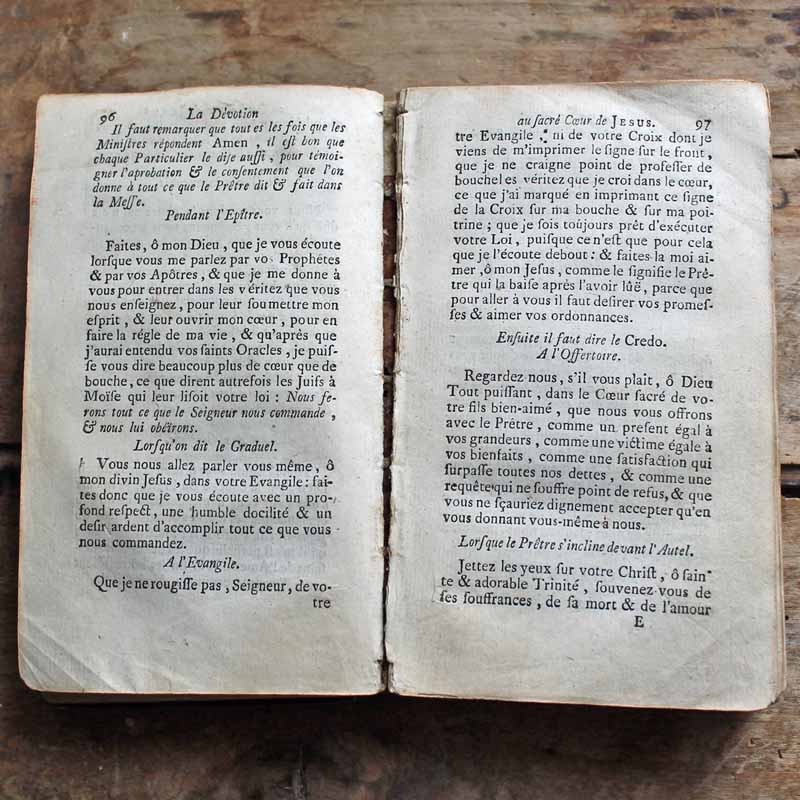 96 La Dévotion
Il faut remarquer que toutes les fois que les
Miniſtres répondent Amen, il eſt bon que
chaque Particulier le diſe auſſi, pour témoi-
gner l'aprobation & le conſentement que l'on
donne à tout ce que le Prêtre dit & fait dans
la Meſſe.
Pendant l'Epître.
Faites, ô mon Dieu, que je vous écoute
lorſque vous me parlez par vos Prophétes
& par vos Apôtres, & que je me donne à
vous pour entrer dans les véritez que vous
nous enſeignez, pour leur ſoumettre mon
eſprit, & leur ouvrir mon cœur, pour en
faire la régle de ma vie, & qu'après que
j'aurai entendu vos ſaints Oracles, je puiſ-
ſe vous dire beaucoup plus de cœur que de
bouche, ce que dirent autrefois les Juifs à
Moïſe qui leur liſoit votre loi : Nous fe-
rons tout ce que le Seigneur nous commande,
& nous lui obéirons.
Lorſqu'on dit le Graduel.
Vous nous allez parler vous même, ô
mon divin Jeſus, dans votre Evangile : fai-
tes donc que je vous écoute avec un pro-
fond reſpect, une humble docilité & un
deſir ardent d'accomplir tout ce que vous
nous commandez.
A l'Evangile.
Que je ne rougiſſe pas, Seigneur, de vo-
tre
au ſacré Cœur de JESUS. 97
tre Evangile, ni de votre Croix dont je
viens de m'imprimer le ſigne ſur le front,
que je ne craigne point de profeſſer de
bouche les véritez que je croi dans le cœur,
ce que j'ai marqué en imprimant ce ſigne
de la Croix ſur ma bouche & ſur ma poi-
trine ; que je ſois toujours prêt d'exécuter
votre Loi, puiſque ce n'eſt que pour cela
que je l'écoute debout : & faites-la moi ai-
mer, ô mon Jeſus, comme le ſignifie le Prê-
tre qui la baiſe après l'avoir lûë, parce que
pour aller à vous il faut deſirer vos promeſ-
ſes & aimer vos ordonnances.
Enſuite il faut dire le Credo.
A l'Offertoire.
Regardez-nous, s'il vous plait, ô Dieu
Tout puiſſant, dans le Cœur ſacré de vo-
tre fils bien-aimé, que nous vous offrons
avec le Prêtre, comme un preſent égal à
vos grandeurs, comme une victime égale à
vos bienfaits, comme une ſatisfaction qui
ſurpaſſe toutes nos dettes, & comme une
requête qui ne ſouffre point de refus, & que
vous ne ſçauriez dignement accepter qu'en
vous donnant vous-même à nous.
Lorſque le Prêtre s'incline devant l'Autel.
Jettez les yeux ſur votre Chriſt, ô ſain-
te & adorable Trinité, ſouvenez-vous de
ſes ſouffrances, de ſa mort & de l'amour
E